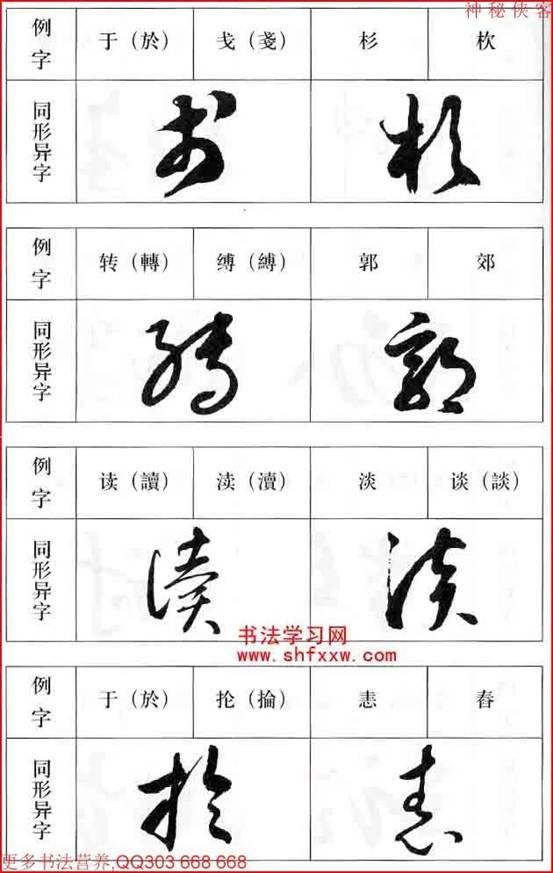 神秘侠客
例字 于（於） 戋（戔） 杉
同形异字
例字 转（轉） 缚（縛） 郭 郊
同形异字
例字 读（讀） 渎（瀆） 淡 谈（談）
同形异字
书法学习网
www.shfxxw.com
例字 于（於） 抡（掄） 恚
同形异字
更多书法营养,QQ303 668 668